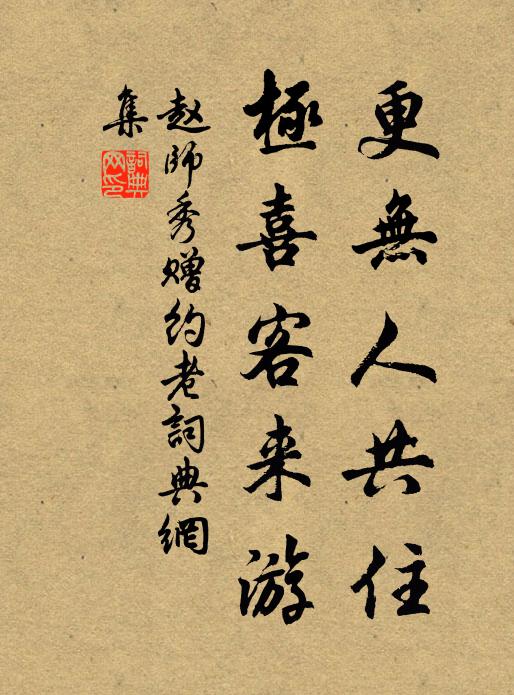 更無人共住
極喜客来游
赵師秀赠约老詞典網
集
詞典
网印